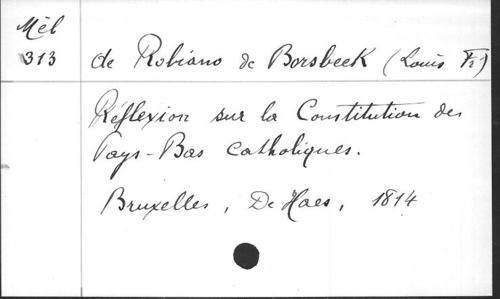 Mél
313
de Robiano de Borsbeek (Louis Fr)
Réflexion sur la Constitution des
Pays-Bas Catholiques.
Bruxelles, De Haes, 1814